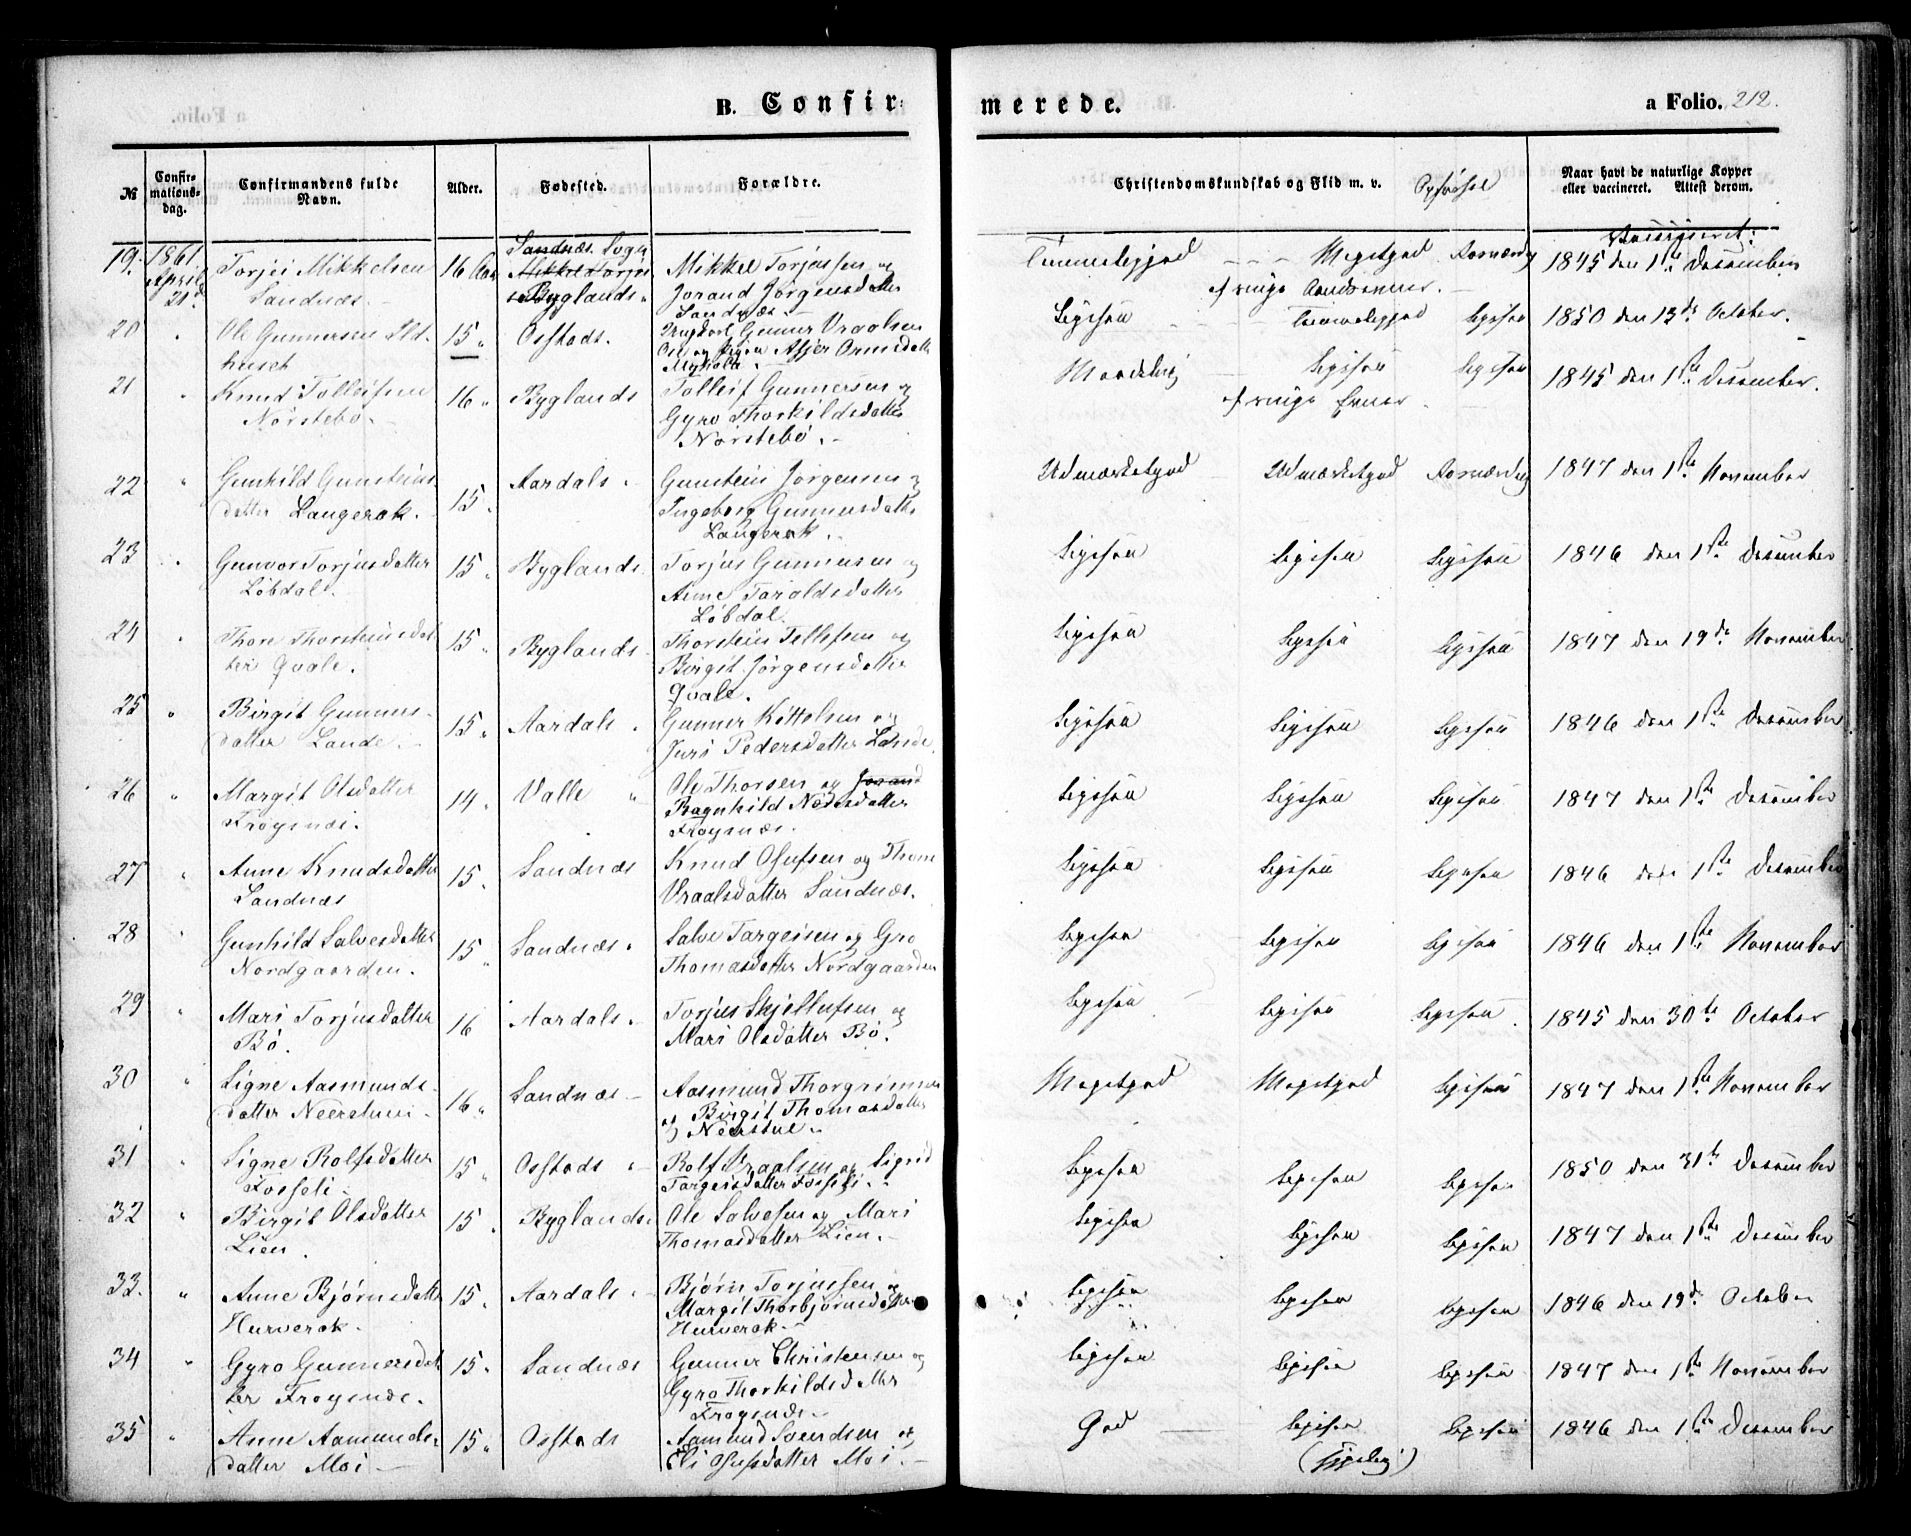 B. Confirmerede.
a Folio. 212.
№
Confirmations-dag.
Confirmandens fulde Navn.
Alder.
Fødested.
Forældre.
Christendomskundskab og Flid m. v.
Opførsel
Naar havt de naturlige Kopper eller vaccineret. Attest derom.
19. 1861 April 21de
Torjei Mikkelsen
Sandnæs.
16 Aar
Sandnæs Sogn
Byglands
Mikkel Torjussen og
Jorand Jørgensdatter
Sandnæs.
Temmeliggod - - - Megetgod
Vaccineret:
1845 den 1ste December
20 " Ole Gunnersen
huset
15 "
Osstads.
Gunner Vraalsen
Ose og
1850 den 13de October.
21 " Knud Tolleifsen
Nørstebø.
16 "
Byglands
Tolleif Gunnersen og
Gyro Thorkildsdatter
Nørstebø.
1845 den 1ste December.
22 " Gunhild Gunsteins
datter Langerak.
15 "
Aardals "
Gunstein Jørgensen og
Ingeborg Gunnersdatter
Langerak.
Udmærketgod Udmærketgod
1847 den 1ste November
23 " Gunvor Torjusdatter
Løbdal.
15 "
Byglands
Torjus Gunnersen og
Anne Taraldsdatter
Løbdal.
Ligesaa Ligesaa Ligesaa
1846 den 1ste December
24 " Thore Thorsteinsdat
ter Qvale.
15 "
Byglands
Thorstein Tellefsen og
Birgit Jørgensdatter
Qvale.
Ligesaa Ligesaa Ligesaa
1847 den 19de November
25 " Birgit Gunners-
datter Lande.
15 "
Aardals "
Gunner Kittelsen og
Juri Pedersdatter Lande.
Ligesaa Ligesaa Ligesaa
1846 den 1ste December
26 " Margit Olsdatter
Frøysnæs.
14 "
Valle "
Ole Thorsen og Jorand
Ragnhild
Frøysnæs.
Ligesaa Ligesaa Ligesaa
1847 den 1ste December
27 " Anne Knudsdatter
Sandnæs
15 "
Sandnæs
Knud Olufsen og Thone
Vraalsdatter Sandnæs.
Ligesaa Ligesaa Ligesaa
1846 den 1ste December
28 " Gunhild Salvesdatter
Nordgaarden.
15 "
Sandnæs "
Salve Targeisen og Gro
Thomasdatter Nordgaarden
Ligesaa Ligesaa Ligesaa
1846 den 1ste November
29 " Mari Torjusdatter
Bø.
16
Aardals "
Torjus Skjellufsen og
Mari Olsdatter Bø.
Ligesaa Ligesaa Ligesaa
1845 den 30te October
30 " Signe Aasmunds-
datter
16 "
Sandnæs
Aasmund Thorgrimsen
og Birgit Thomasdatter
Neerstue.
Megetgod Megetgod Ligesaa
1847 den 1ste November
31 " Signe Rolfsdatter
Fosseli.
15 "
Osstads "
Rolf Vraalsen og Sigrid
Targeisdatter Fosseli.
Ligesaa Ligesaa Ligesaa
1850 den 31te December
32 " Birgit Olsdatter
Lien.
15 "
Byglands "
Ole Salvesen og Mari
Thomasdatter Lien.
Ligesaa Ligesaa Ligesaa
1847 den 1ste December
33. " Anne Bjørnsdatter
Hurverak.
15 "
Aardals "
Bjørn Torjussen og
Margit Thorbjørnsdatter
Hurverak.
Ligesaa Ligesaa Ligesaa
1846 den 19de October
34 " Gyro Gunnersdat
ter Frøysnæs.
15 "
Sandnæs
Gunner Christensen og
Gyro Thorkildsdatter
Frøysnæs.
Ligesaa Ligesaa Ligesaa
1847 den 1ste November
35 " Anne Aamunds-
datter Moi
15 "
Osstads
Aamund Svendsen og
Eli Olufsdatter Moi.
God Ligesaa Ligesaa
1846 den 1ste December